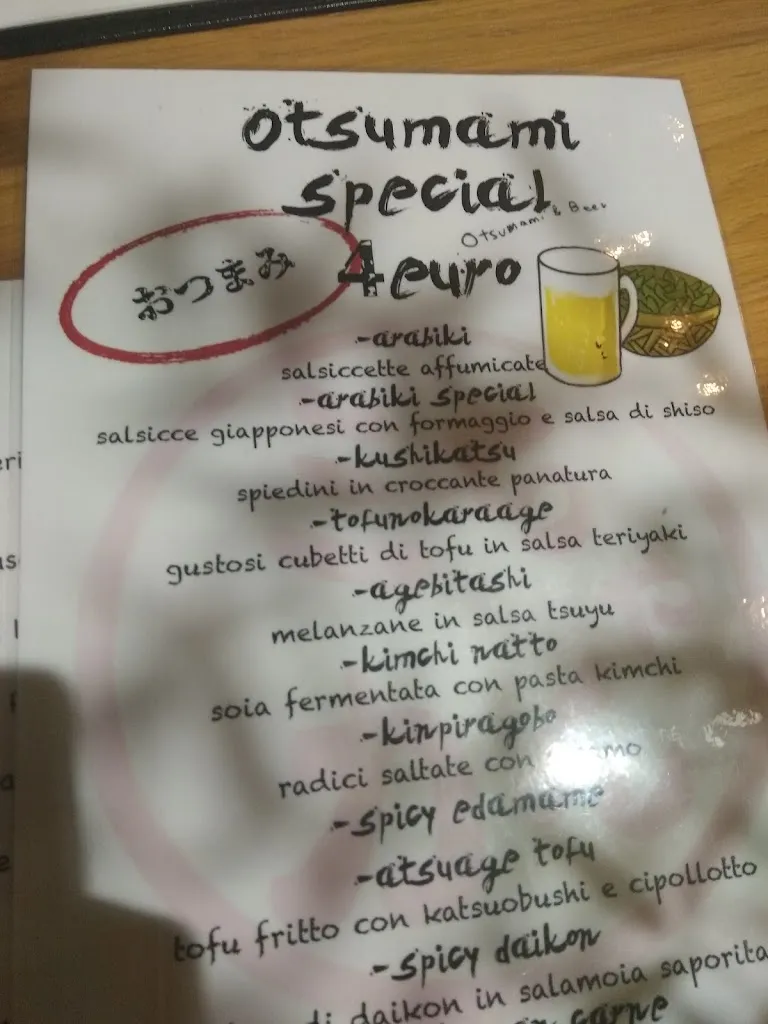 otsumami
special
Otsumami & Beer
おつまみ
4 euro
-arabiki
salsiccette affumicate
-arabiki special
salsicce giapponesi con formaggio e salsa di shiso
-kushikatsu
spiedini in croccante panatura
-tofunokaraage
gustosi cubetti di tofu in salsa teriyaki
-agebitashi
melanzane in salsa tsuyu
-kimchi natto
soia fermentata con pasta kimchi
-kinpiragobo
radici saltate con
-spicy edamame
-atsuage tofu
tofu fritto con katsuobushi e cipollotto
-spicy daikon
di daikon in salamoia saporita
carne